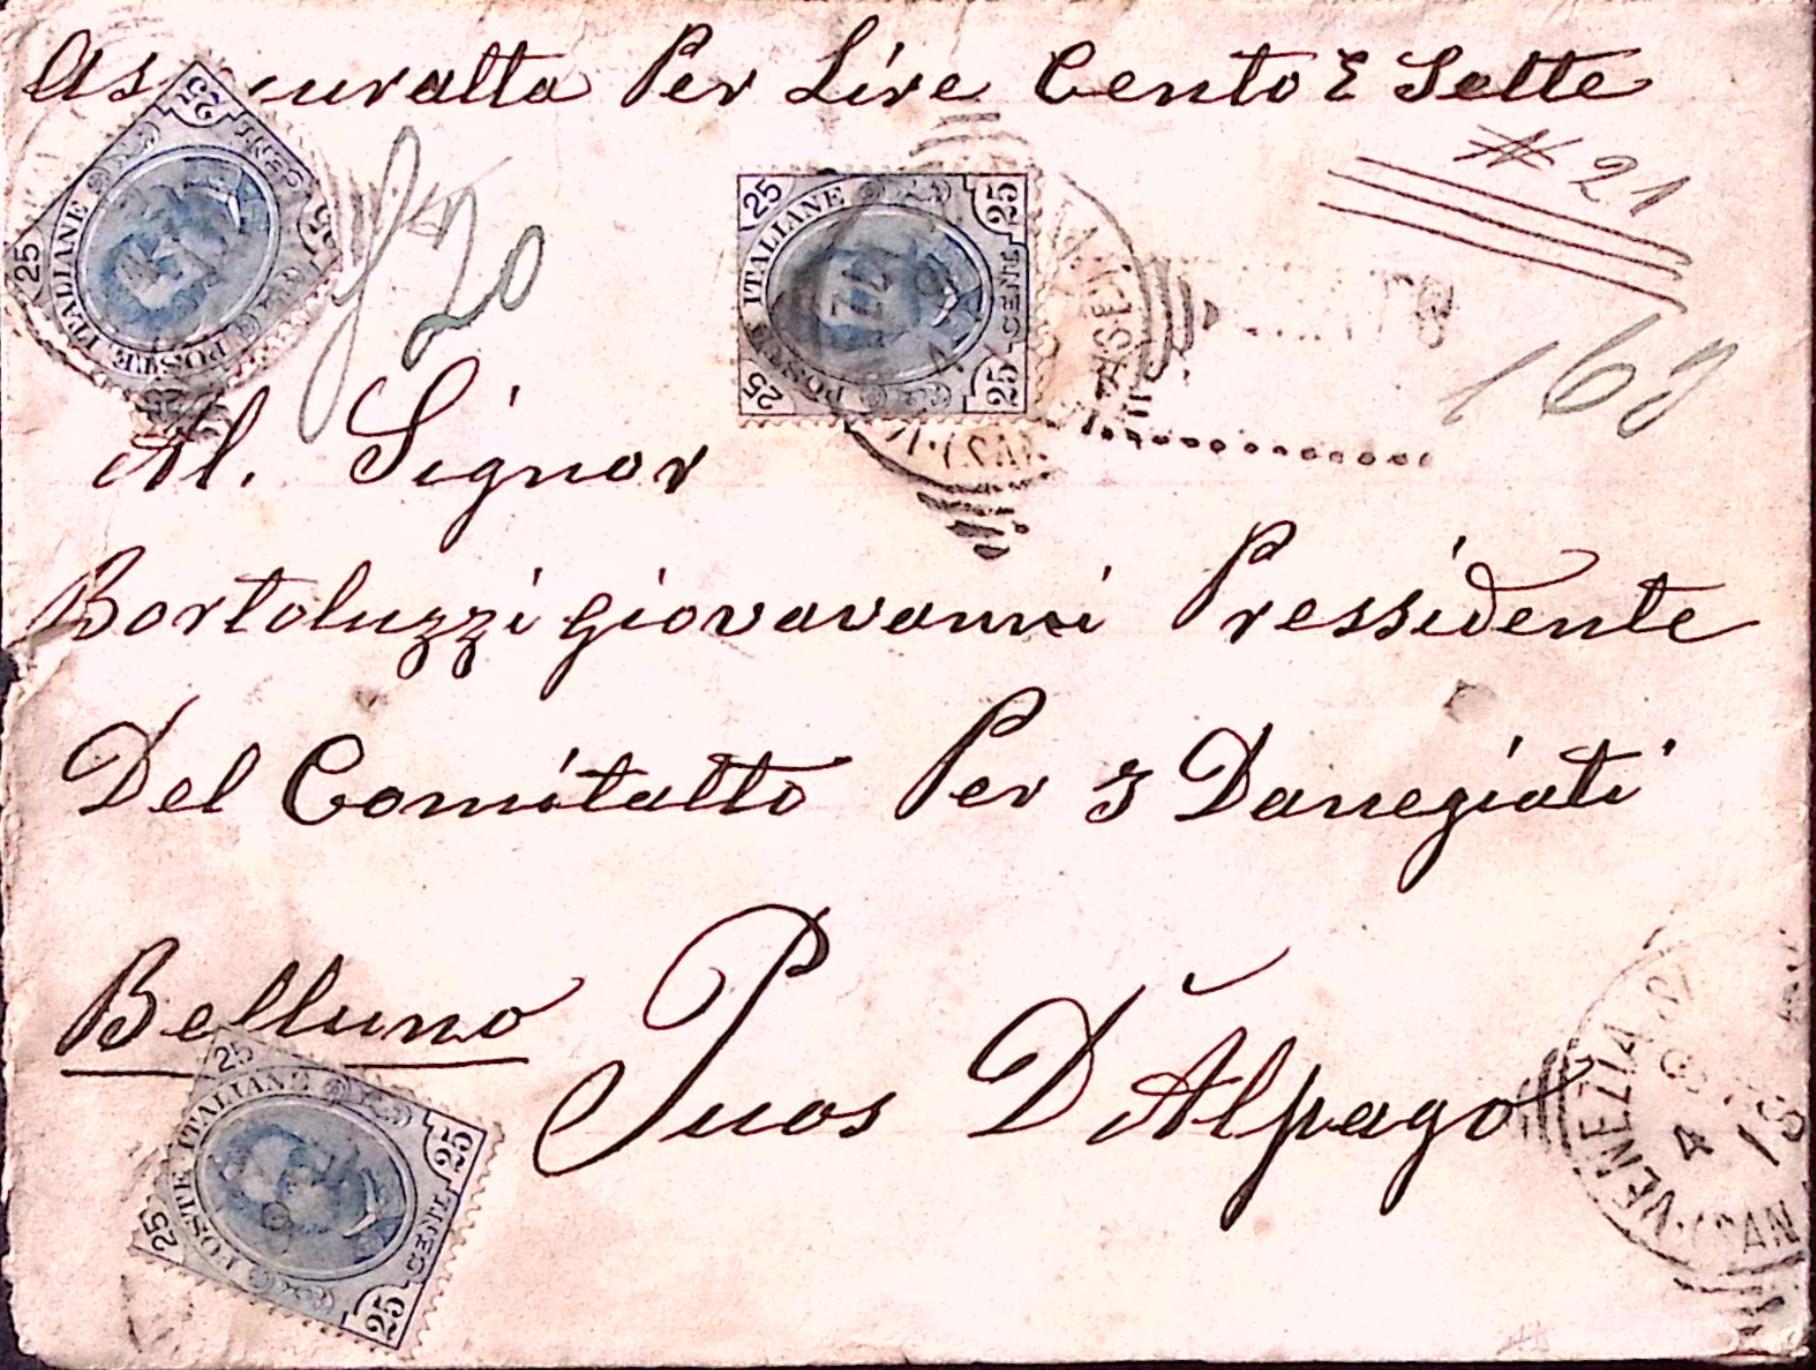 Assicuratta Per Lire Cento E Sette
# 21
f 20
168
Al. Signor
Bortoluzzi Giovavanni Pressidente
Del Comitatto Per I Danegiati
Belluno Puos D'Alpago
25 25 POSTE ITALIANE CENT. 25 25
25 25 POSTE ITALIANE CENT. 25 25
25 25 POSTE ITALIANE CENT. 25 25
VENEZIA